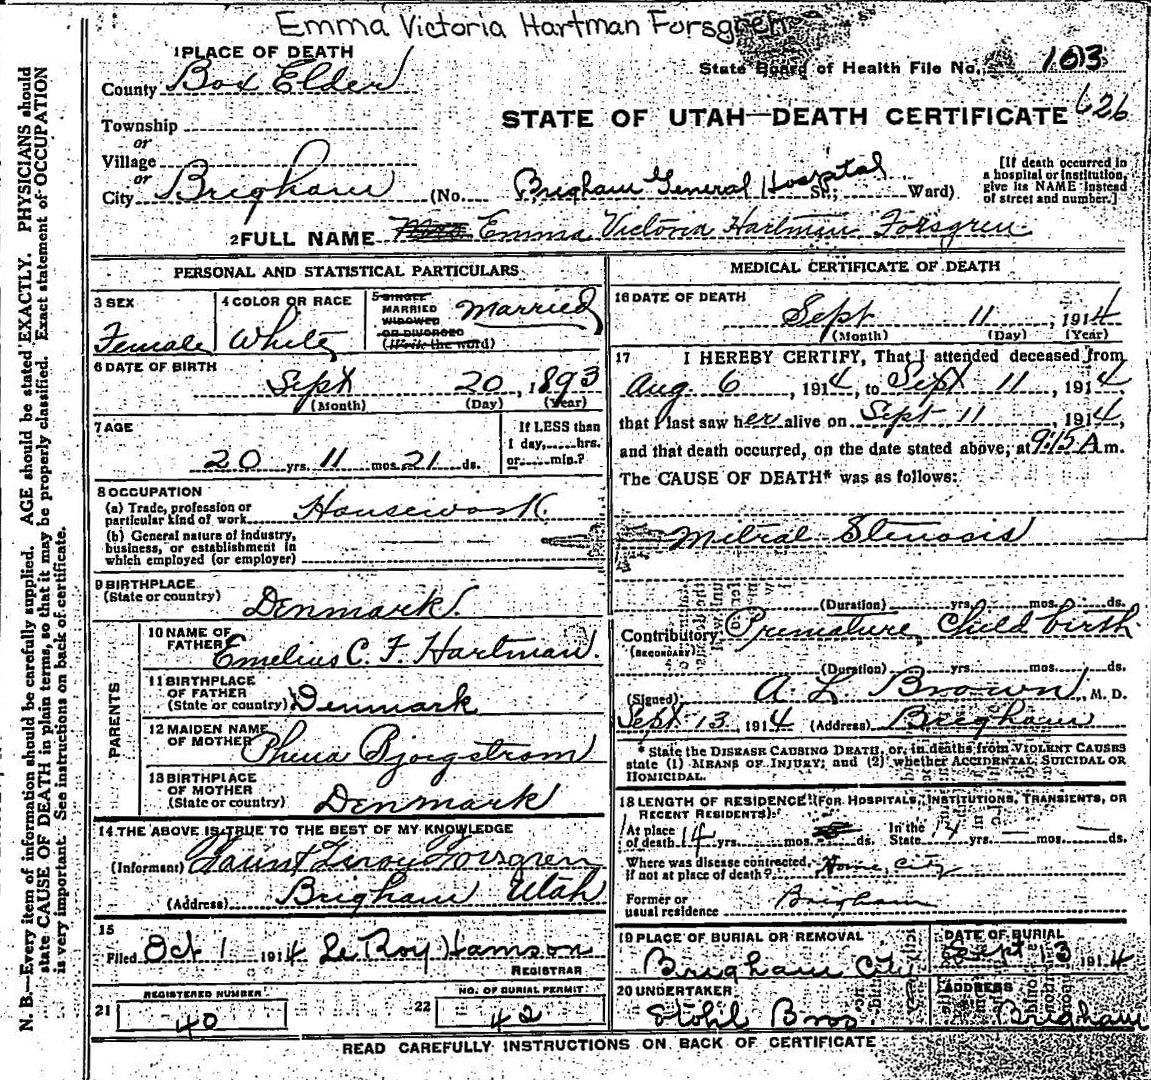 Emma Victoria Hartman Forsgren
1 PLACE OF DEATH
State Board of Health File No. 103
County Box Elder
STATE OF UTAH—DEATH CERTIFICATE 626
Township
or
Village
or
City Brigham (No. Brigham General Hospital St.; Ward)
[If death occurred in
a hospital or institution,
give its NAME instead
of street and number.]
2 FULL NAME Emma Victoria Hartman Forsgren
PERSONAL AND STATISTICAL PARTICULARS
3 SEX
Female
4 COLOR OR RACE
White
5 SINGLE
MARRIED
WIDOWED
OR DIVORCED
(Write the word)
Married
6 DATE OF BIRTH
Sept 20, 1893
(Month) (Day) (Year)
7 AGE
20 yrs. 11 mos. 21 ds.
If LESS than
1 day, hrs.
or min.?
8 OCCUPATION
(a) Trade, profession or
particular kind of work Housework
(b) General nature of industry,
business, or establishment in
which employed (or employer)
9 BIRTHPLACE
(State or country) Denmark
PARENTS
10 NAME OF
FATHER Emelius C. F. Hartman.
11 BIRTHPLACE
OF FATHER
(State or country) Denmark
12 MAIDEN NAME
OF MOTHER
13 BIRTHPLACE
OF MOTHER
(State or country) Denmark
14 THE ABOVE IS TRUE TO THE BEST OF MY KNOWLEDGE
(Informant) Leroy Forsgren
(Address) Brigham Utah
15
Filed Oct 1 1914 Le Roy Hamson
REGISTRAR
21 REGISTERED NUMBER
40
22 NO. OF BURIAL PERMIT
42
MEDICAL CERTIFICATE OF DEATH
16 DATE OF DEATH
Sept 11, 1914
(Month) (Day) (Year)
17 I HEREBY CERTIFY, That I attended deceased from
Aug. 6, 1914, to Sept 11, 1914
that I last saw her alive on Sept 11, 1914,
and that death occurred, on the date stated above, at 9:15 A.m.
The CAUSE OF DEATH* was as follows:
Mitral Stenosis
(Duration) yrs. mos. ds.
Contributory Premature Child birth
(SECONDARY)
(Duration) yrs. mos. ds.
(Signed) A. L. Brown, M. D.
Sept 13, 1914 (Address) Brigham
* State the DISEASE CAUSING DEATH, or, in deaths from VIOLENT CAUSES
state (1) MEANS OF INJURY; and (2) whether ACCIDENTAL, SUICIDAL OR
HOMICIDAL.
18 LENGTH OF RESIDENCE (FOR HOSPITALS, INSTITUTIONS, TRANSIENTS, OR
RECENT RESIDENTS).
At place
of death 14 yrs. mos. ds. In the
State 14 yrs. — mos. — ds.
Where was disease contracted,
if not at place of death? Home, City
Former or
usual residence Brigham
19 PLACE OF BURIAL OR REMOVAL
Brigham City
DATE OF BURIAL
Sept 13 1914
20 UNDERTAKER
Stohl Bros.
ADDRESS
Brigham
READ CAREFULLY INSTRUCTIONS ON BACK OF CERTIFICATE
N. B.—Every item of information should be carefully supplied. AGE should be stated EXACTLY. PHYSICIANS should
state CAUSE OF DEATH in plain terms, so that it may be properly classified. Exact statement of OCCUPATION
is very important. See instructions on back of certificate.